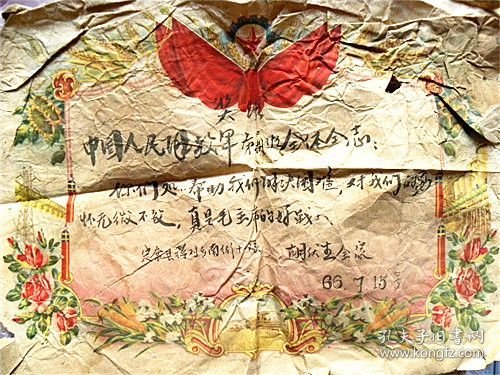 奖给
中国人民解放军 全体同志:
你们处处帮助我们解决困难,对我们的关
怀无微不致,真是毛主席的好战士。
南街十号 胡 全家
66 7 15号
孔夫子旧书网
www.kongfz.com